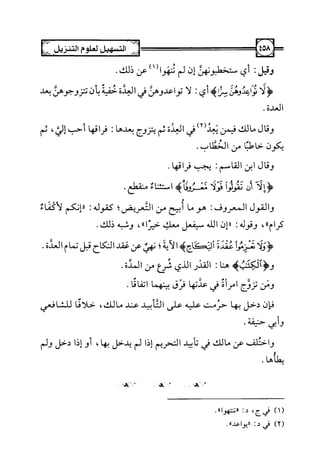 ٤٥٨
التسهيل لعلوم التنزيل
وقيل: أي ستخطبونهنَّ إن لم تُنهَوا(١) عن ذلك.
﴿لَّا تُوَاعِدُوهُنَّ سِرًّا﴾ أي: لا تواعدوهنَّ في العِدَّة خُفيةً بأن تتزوجوهنَّ بعد
العدة.
وقال مالك فيمن يَعِدُ(٢) في العِدَّة ثم يتزوج بعدها: فراقها أحب إليَّ، ثم
يكون خاطبًا من الخُطَّاب.
وقال ابن القاسم: يجب فراقها.
﴿إِلَّا أَن تَقُولُوا قَوْلًا مَّعْرُوفًا﴾ استثناءٌ منقطع.
والقول المعروف: هو ما أُبيح من التَّعريض؛ كقوله: «إنكم لأَكْفَاءٌ
كرام»، وقوله: «إن الله سيفعل معكِ خيرًا»، وشبه ذلك.
﴿وَلَا تَعْزِمُوا عُقْدَةَ النِّكَاحِ﴾ الآيةَ؛ نهيٌ عن عَقد النكاح قبل تمام العدَّة.
و﴿الْكِتَابُ﴾ هنا: القدْر الذي شُرع من المدَّة.
ومَن تزوَّج امرأةً في عدَّتها فرِّق بينهما اتفاقًا.
فإن دخل بها حرُمت عليه على التَّأبيد عند مالك، خلافًا للشافعي
وأبي حنيفة.
واختُلف عن مالك في تأبيد التحريم إذا لم يدخل بها، أو إذا دخل ولم
يطأها.
(١) في ج، د: «تنتهوا».
(٢) في د: «يواعد».